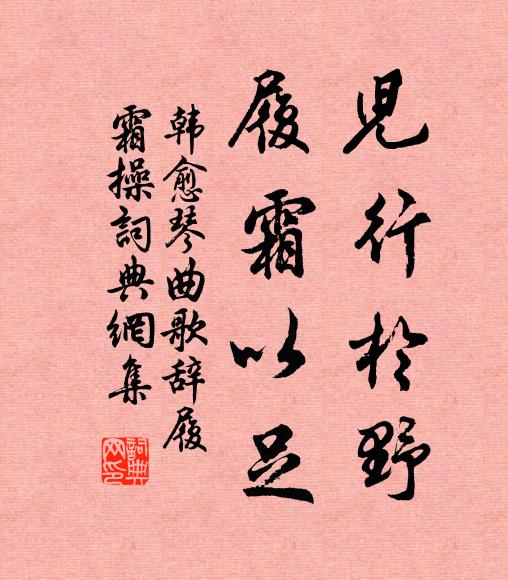 兒行於野
履霜以足
韩愈琴曲歌辞履
霜操詞典網集
詞典网印